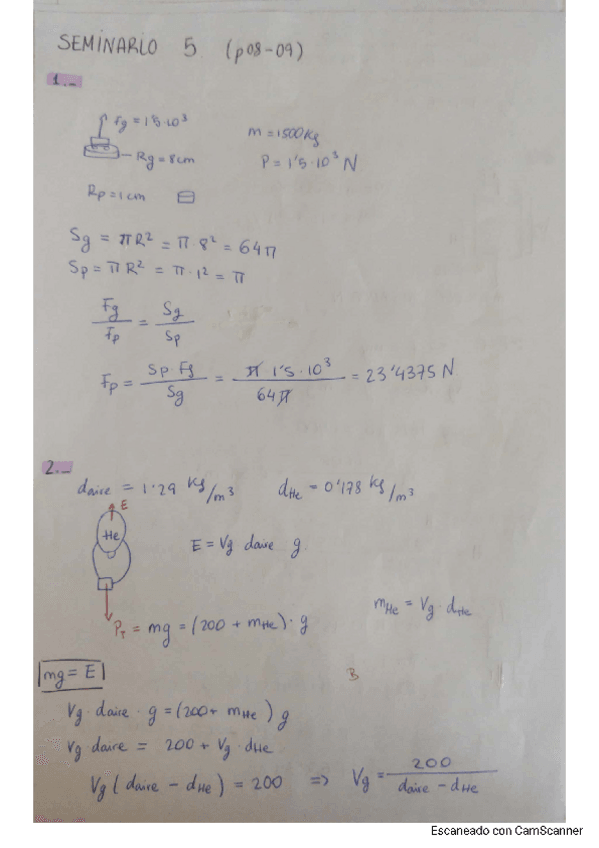 SEMINARIO 5 (p08-09)
1._
Fg = 1'5·10³
m = 1500 Kg
Rg = 8cm
P = 1'5·10³ N
Rp = 1cm
Sg = πR² = π·8² = 64π
Sp = πR² = π·1² = π
Fg/Fp = Sg/Sp
Fp = Sp·Fg/Sg = π 1'5·10³/64π = 23'4375 N
2._
daire = 1'29 Kg/m³ dHe = 0'178 Kg/m³
E
He
E = Vg daire g
mHe = Vg·dHe
PT = mg = (200 + mHe)·g
mg = E
B
Vg · daire · g = (200 + mHe) g
Vg daire = 200 + Vg·dHe
Vg (daire - dHe) = 200 => Vg = 200/daire - dHe
Escaneado con CamScanner